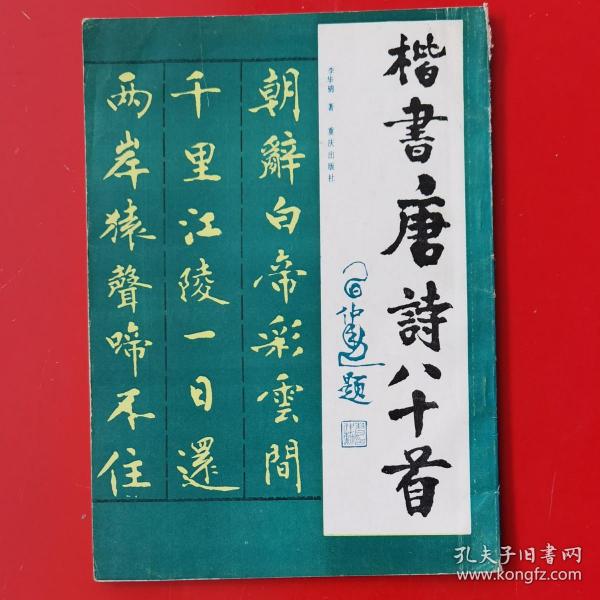 楷書唐詩八十首
李华锦 著 重庆出版社
題
朝辭白帝彩雲間
千里江陵一日還
两岸猿聲啼不住
孔夫子旧書网
www.kongfz.com